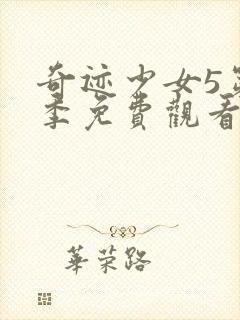 奇迹少女5第
季免費觀看
華荣路